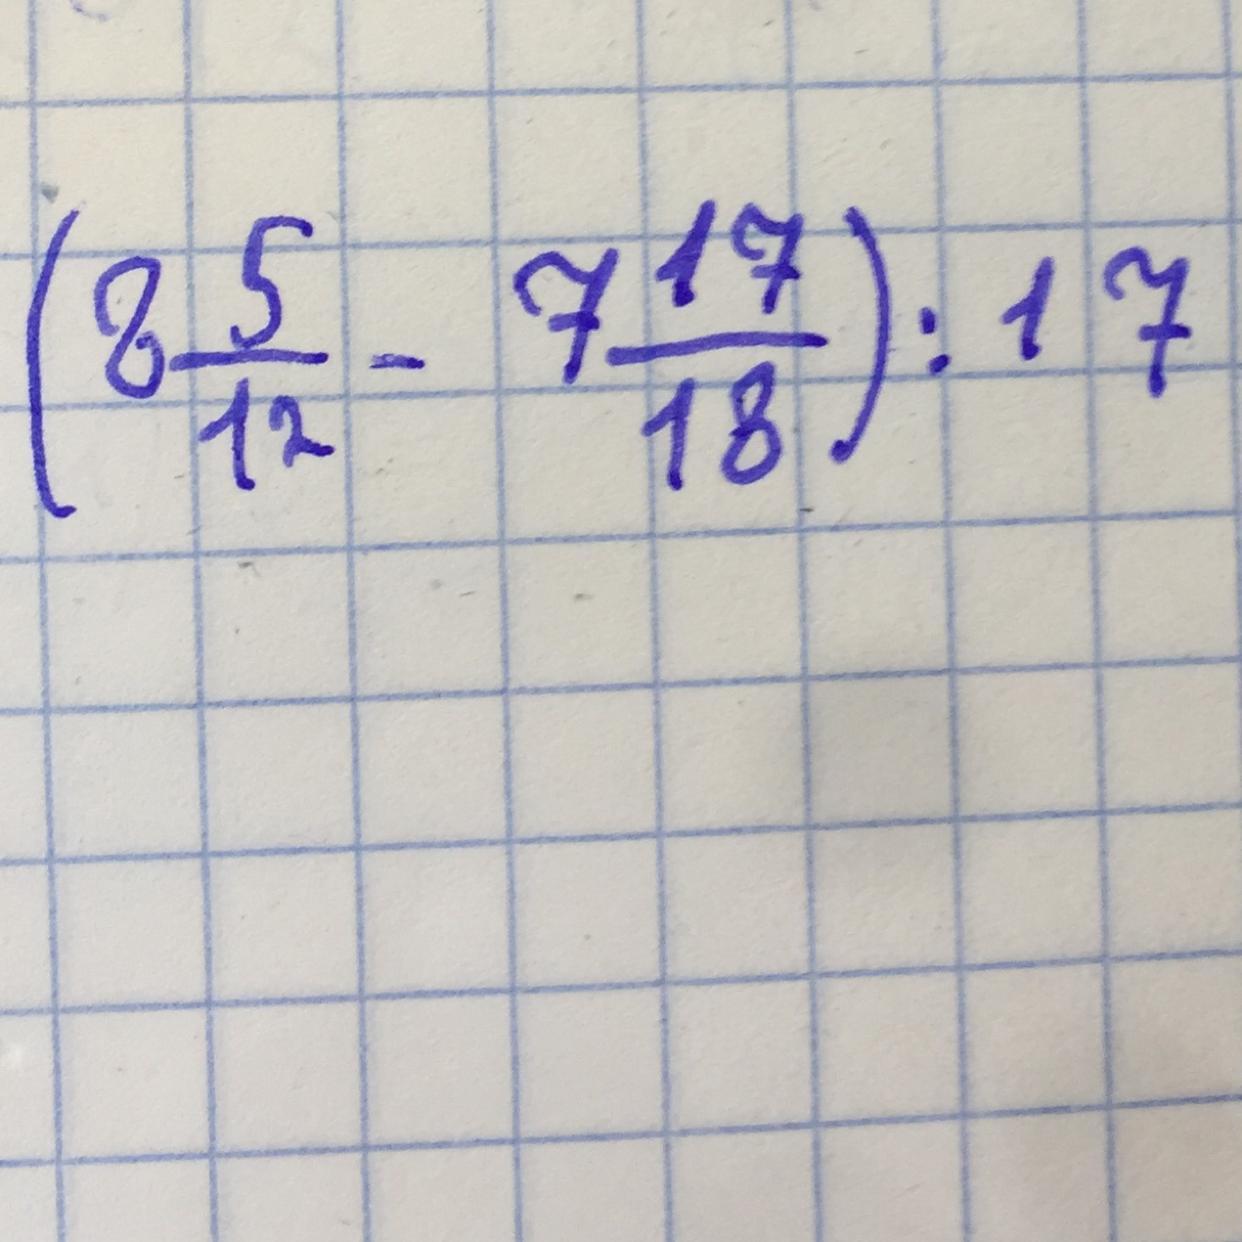 (8 5/12 - 7 17/18) : 17